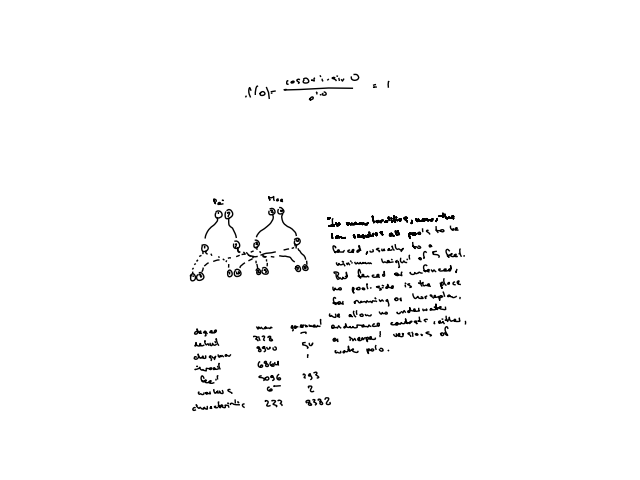 f(0) = (cos 0 + i · sin 0) / e^(i·0) = 1
Pai Moa
"In many localities, now, the
law requires all pools to be
fenced, usually to a
minimum height of 5 feet.
But fenced or unfenced,
no pool-side is the place
for running or horseplay.
We allow no underwater
endurance contests, either,
or inexpert versions of
water polo.
degree man
7028
8940 50
clergyman 1
thread 6864
feet 5096 293
workers 6 2
characteristic 222 8382